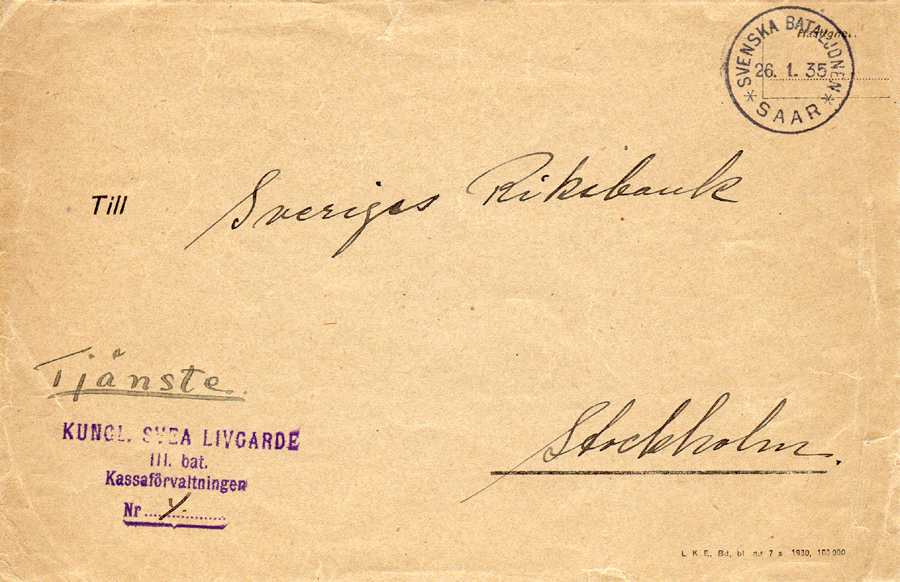 SVENSKA BATALJONEN
26. 1. 35
* SAAR *
Till Sveriges Riksbank
Tjänste
KUNGL. SVEA LIVGARDE
III. bat.
Kassaförvaltningen
Nr
Stockholm.
L. K. E. Bd, bl. n:r 7 a 1930, 100 000